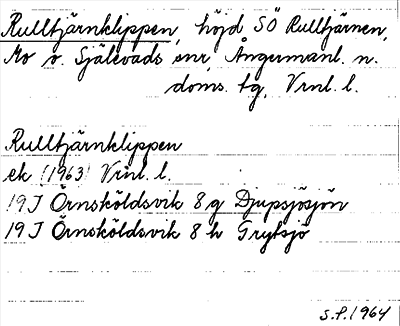 Rulltjärnklippen, höjd SÖ Rulltjärnen,
Mo o. Själevads snr, Ångermanl. n.
doms. tg, Vrnl. l.
Rulltjärnklippen
ek (1963) Vrnl. l.
19 J Örnsköldsvik 8 g Djupsjösjön
19 J Örnsköldsvik 8 h Grytsjö
S.P. 1964